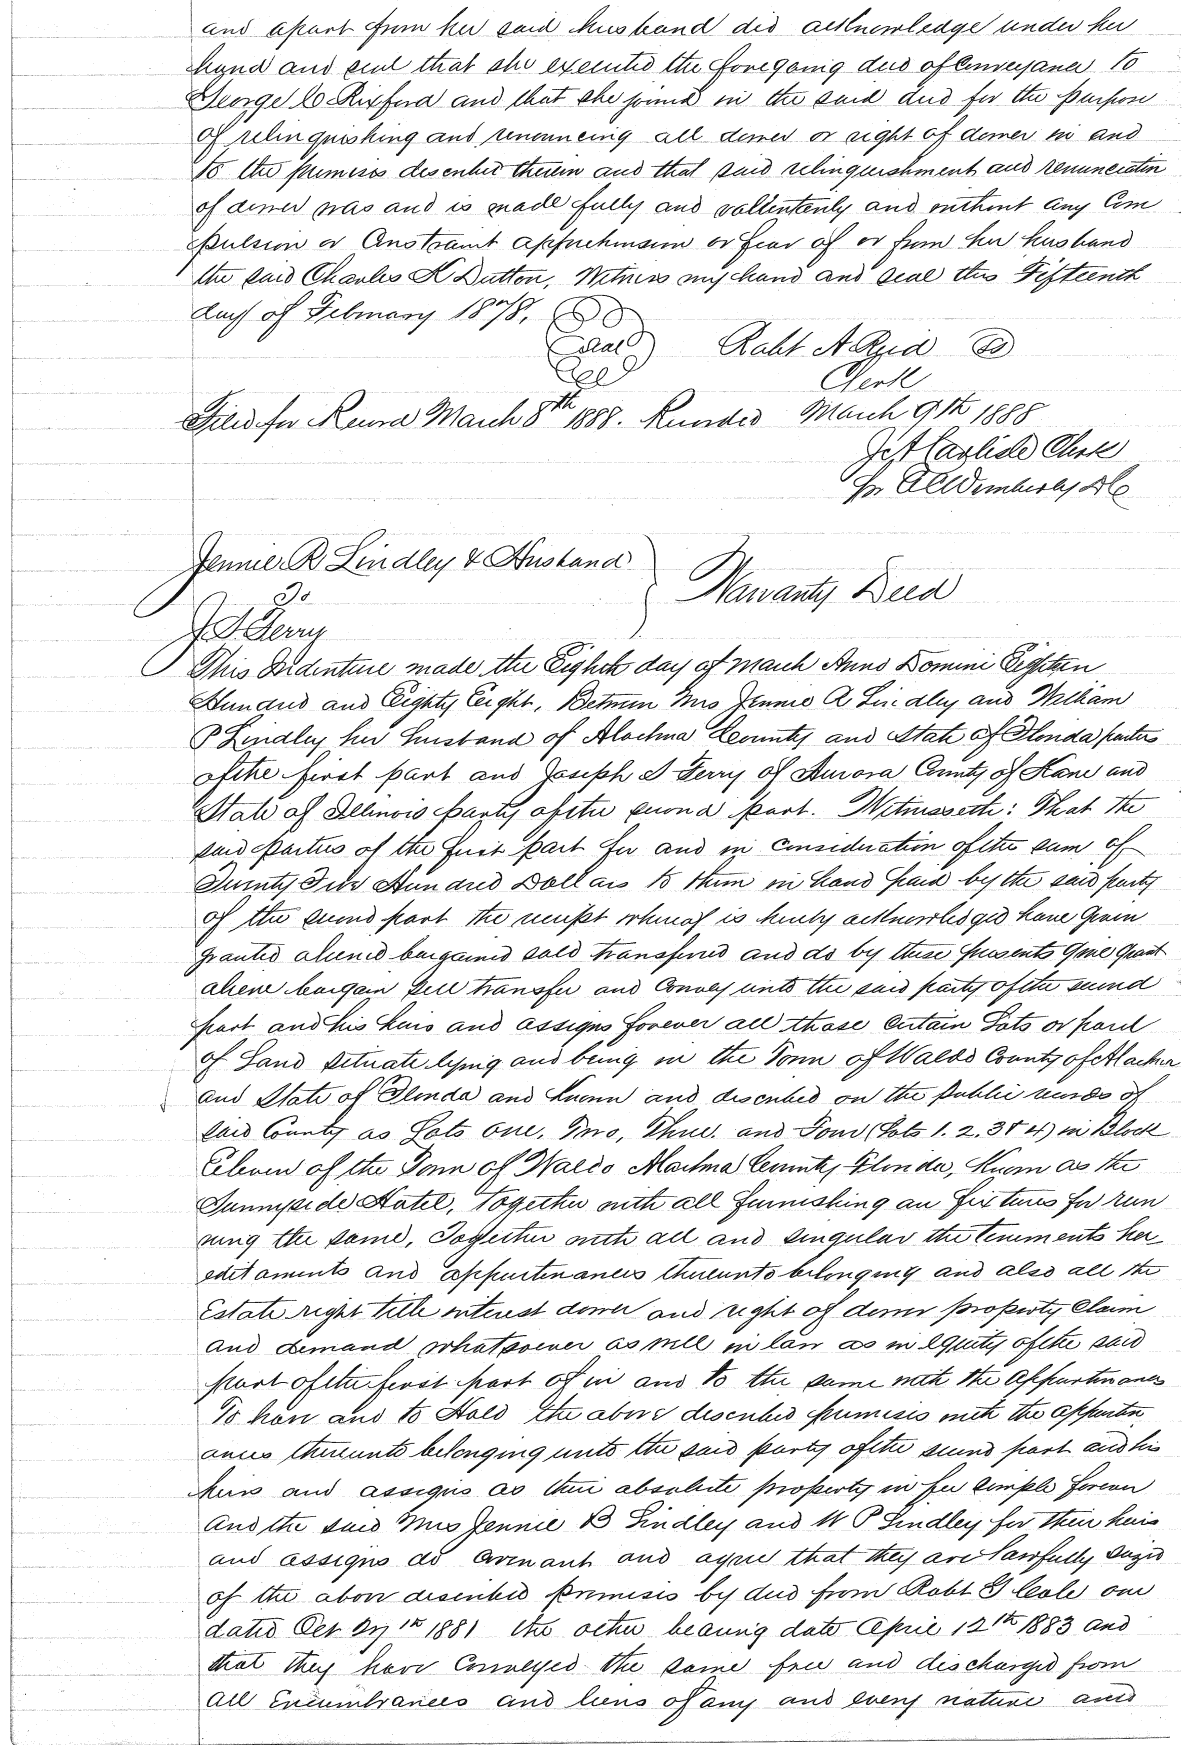 and apart from her said husband did acknowledge under her
hand and seal that she executed the foregoing deed of Conveyance to
George C Rixford and that she joined in the said deed for the purpose
of relinquishing and renouncing all dower or right of dower in and
to the premises described therein and that said relinquishment and renunciation
of dower was and is made fully and vollentarily and without any Com
pulsion or Constraint apprehension or fear of or from her husband
the said Charles K Dutton, Witness my hand and seal this Fifteenth
day of February 1878.
Seal Robt A Reid
Clerk
Filed for Record March 8th 1888. Recorded March 9th 1888
Clerk
DC
Jennie R Lindley & Husband
To
J S Terry
Warranty Deed
This Indenture made the Eighth day of March Anno Domini Eighteen
Hundred and Eighty Eight, Between Mrs Jennie R Lindley and William
P Lindley her husband of Alachua County and State of Florida parties
of the first part and Joseph S Terry of Aurora County of Kane and
State of Illinois party of the second part. Witnesseth: That the
said parties of the first part for and in consideration of the sum of
Twenty Five Hundred Dollars to them in hand paid by the said party
of the second part the receipt whereof is hereby acknowledged have given
granted aliened bargained sold transferred and do by these presents Give Grant
aliene bargain sell transfer and Convey unto the said party of the second
part and his heirs and assigns forever all those Certain Lots or parcel
of Land Situate lying and being in the Town of Waldo County of Alachua
and State of Florida and Known and described on the Public records of
said County as Lots One, Two, Three, and Four (Lots 1. 2. 3 & 4) in Block
Eleven of the Town of Waldo Alachua County Florida, Known as the
Sunnyside Hotel, Together with all furnishing an fixtures for run
ning the same, Together with all and singular the tenements her
editaments and appurtenances thereunto belonging and also all the
Estate right title interest dower and right of dower property Claim
and demand whatsoever as well in law as in Equity of the said
part of the first part of in and to the same with the appurtenances
To have and to Hold the above described premises with the appurten
ances thereunto belonging unto the said party of the second part and his
heirs and assigns as their absolute property in fee simple forever
And the said Mrs Jennie B Lindley and W P Lindley for their heirs
and assigns do covenant and agree that they are lawfully seized
of the above described premises by deed from Robt G Cole one
dated Oct 1881 the other bearing date April 12th 1883 and
that they have Conveyed the same free and discharged from
all Encumbrances and liens of any and every nature and